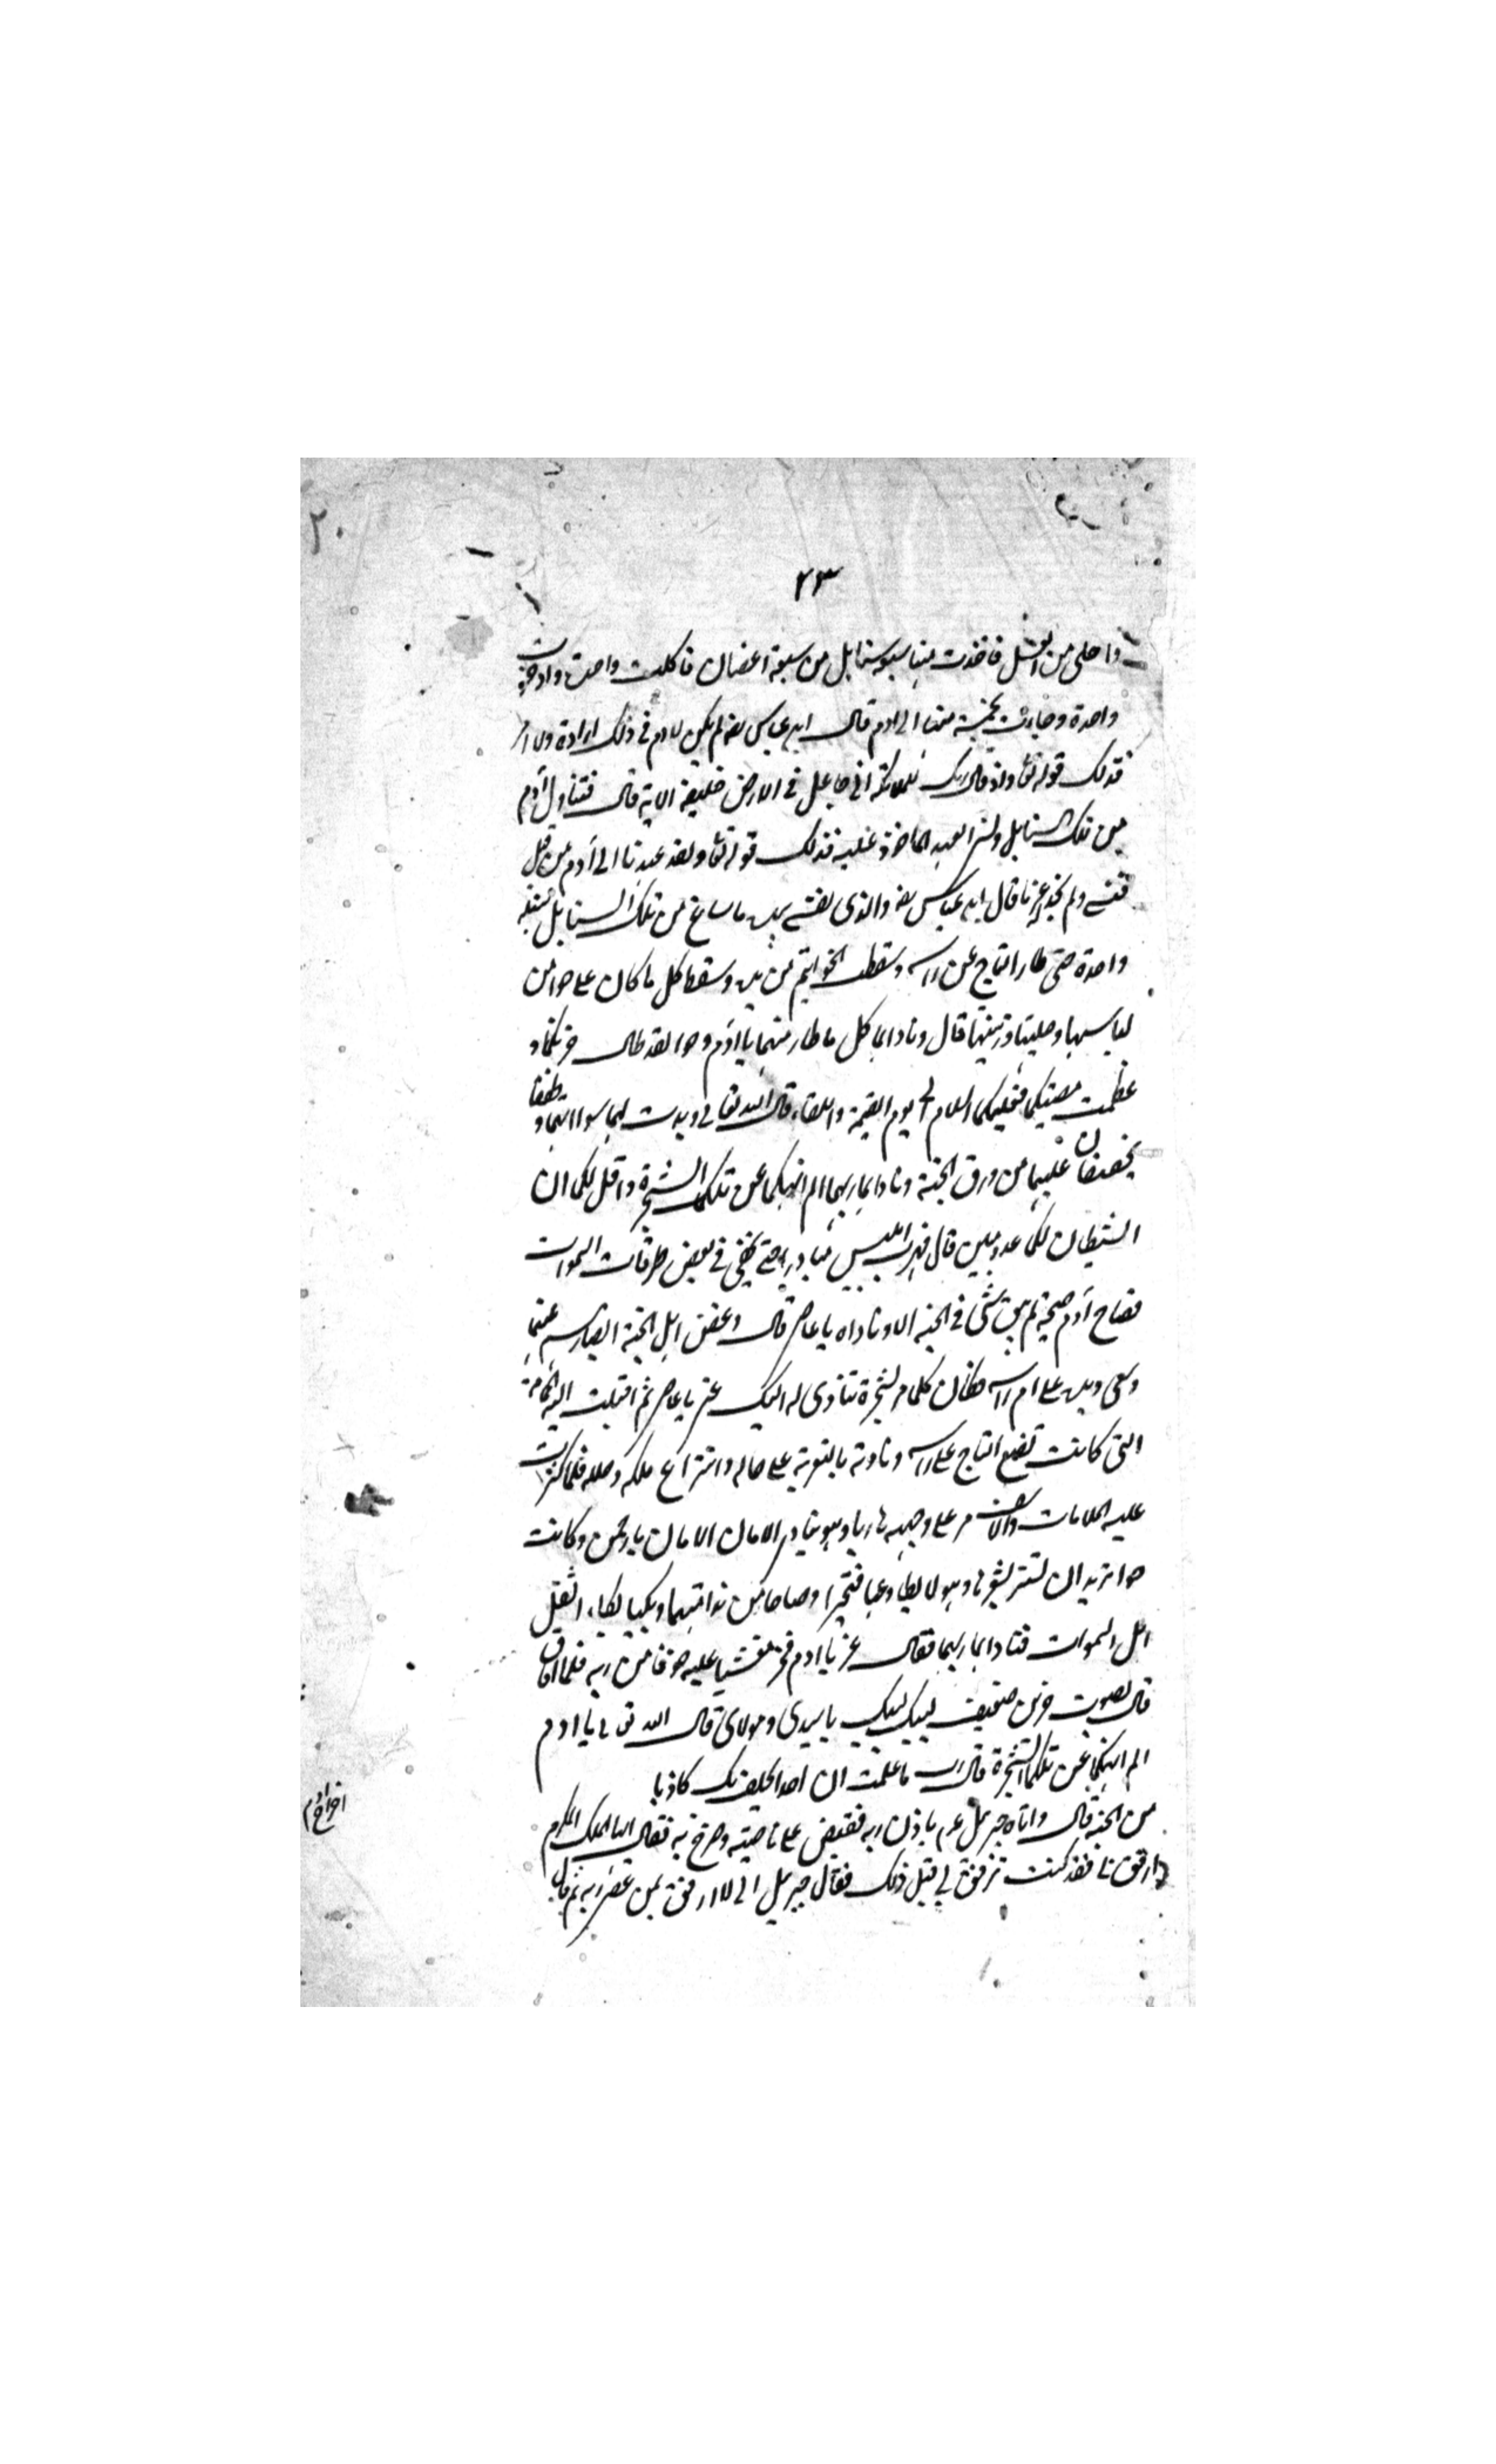 ٢٠
٢٣
واحلى من العسل فاخذت منها سبع سنابل من سبعة اغصان فاكلت واحدة وادخرت
واحدة وجاءت بخمسة منها الى ادم قال ابن عباس رضه لم يكن لادم في ذلك ارادة ولا امر
فذلك قوله تعا واذ قال ربك للملائكة اني جاعل في الارض خليفة الاية قال فتناول آدم
من تلك السنابل ونسي العهد الماخوذ عليه فذلك قوله تعا ولقد عهدنا الى آدم من قبل
فنسي ولم نجد له عزما قال ابن عباس رضه والذي نفسي بيده ما ساغ من تلك السنابل سنبلة
واحدة حتى طار التاج عن راسه وسقطت الخواتيم من يده وسقط كل ما كان على حوا من
لباسها وحليها وزينتها قال وناداهما كل ما طار منهما يا آدم وحوا لقد طال حزنكما و
عظمت مصيبتكما فعليكما السلام الى يوم القيمة واللقاء قال الله تعالى وبدت لهما سوآتهما وطفقا
يخصفان عليهما من ورق الجنة وناداهما ربهما الم انهكما عن تلكما الشجرة واقل لكما ان
الشيطان لكما عدو مبين قال فهرب ابليس مبادرا حتى تخفي في بعض طرقات السموات
فصاح آدم صيحة لم يبق شئ في الجنة الا وناداه يا عاصي قال وغضن اهل الجنة ابصارهم عنهما
وسعى ويده على ام راسه فكان كلما مر بشجرة تنادي له اليك عني يا عاصي ثم اقبلت اليه
التي كانت تضع التاج على راسه ونادته بالتوبة على حاله وانتزاع ملكه وحلله فلما كثرت
عليه الملامات مر على وجهه هاربا وهو ينادي الامان الامان يا رحمن وكانت
حوا تريد ان تستتر بشعرها وهو لا فتحيرا وصاحا من ندامتهما وبكيا بكاء اثقل
اهل السموات فناداهما ربهما فقال عز يا آدم فخر مغشيا عليه خوفا من ربه فلما افاق
قال بصوت حزين ضعيف لبيك لبيك يا سيدي ومولاي قال الله تعالى يا ادم
الم انهكما عن تلكما الشجرة قال رب ما علمت ان احدا يحلف بك كاذبا
من الجنة قال واتاه جبريل عم باذن ربه فقبض على ناصيته وخرج به فقال ايها الملك المكرم
ارفق بنا فقد كنت ترفق لي قبل ذلك فقال جبريل اني لا ارفق بمن عصى ربه ثم قال
اخراج ادم